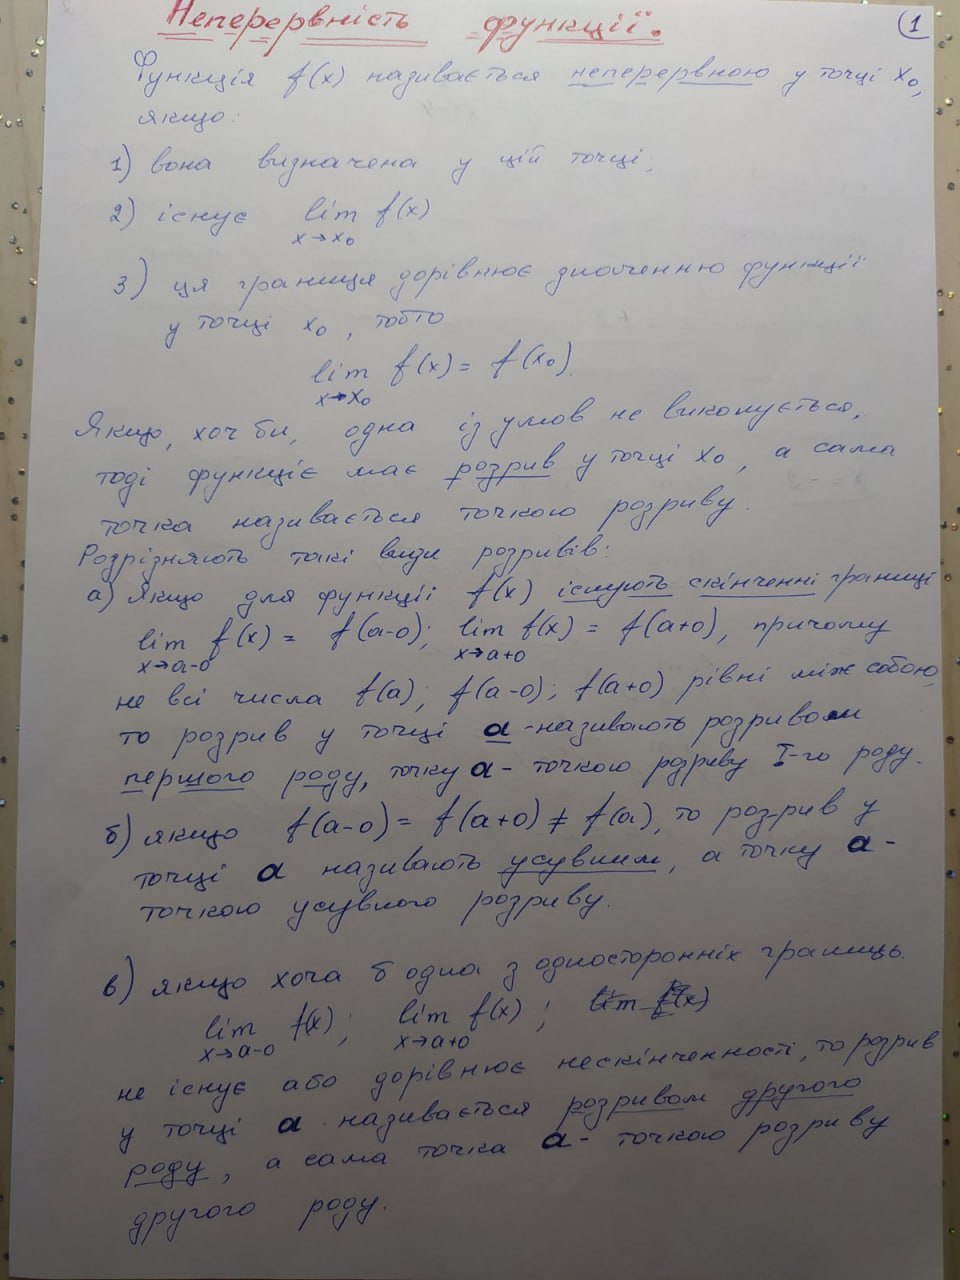 Неперервність функції.
1
Функція f(x) називається неперервною у точці x₀,
якщо:
1) вона визначена у цій точці;
2) існує lim f(x)
x→x₀
3) ця границя дорівнює значенню функції
у точці x₀, тобто
lim f(x) = f(x₀).
x→x₀
Якщо, хоч би, одна із умов не виконується,
тоді функціє має розрив у точці x₀, а сама
точка називається точкою розриву.
Розрізняють такі види розривів:
а) Якщо для функції f(x) існують скінченні границі
lim f(x) = f(a-0); lim f(x) = f(a+0), причому
x→a-0 x→a+0
не всі числа f(a); f(a-0); f(a+0) рівні між собою,
то розрив у точці a - називають розривом
першого роду, точку a - точкою розриву I-го роду.
б) якщо f(a-0) = f(a+0) ≠ f(a), то розрив у
точці a називають усувним, а точку a -
точкою усувного розриву.
в) якщо хоча б одна з односторонніх границь.
lim f(x); lim f(x); lim f(x)
x→a-0 x→a+0
не існує або дорівнює нескінченності, то розрив
у точці a називається розривом другого
роду, а сама точка a - точкою розриву
другого роду.